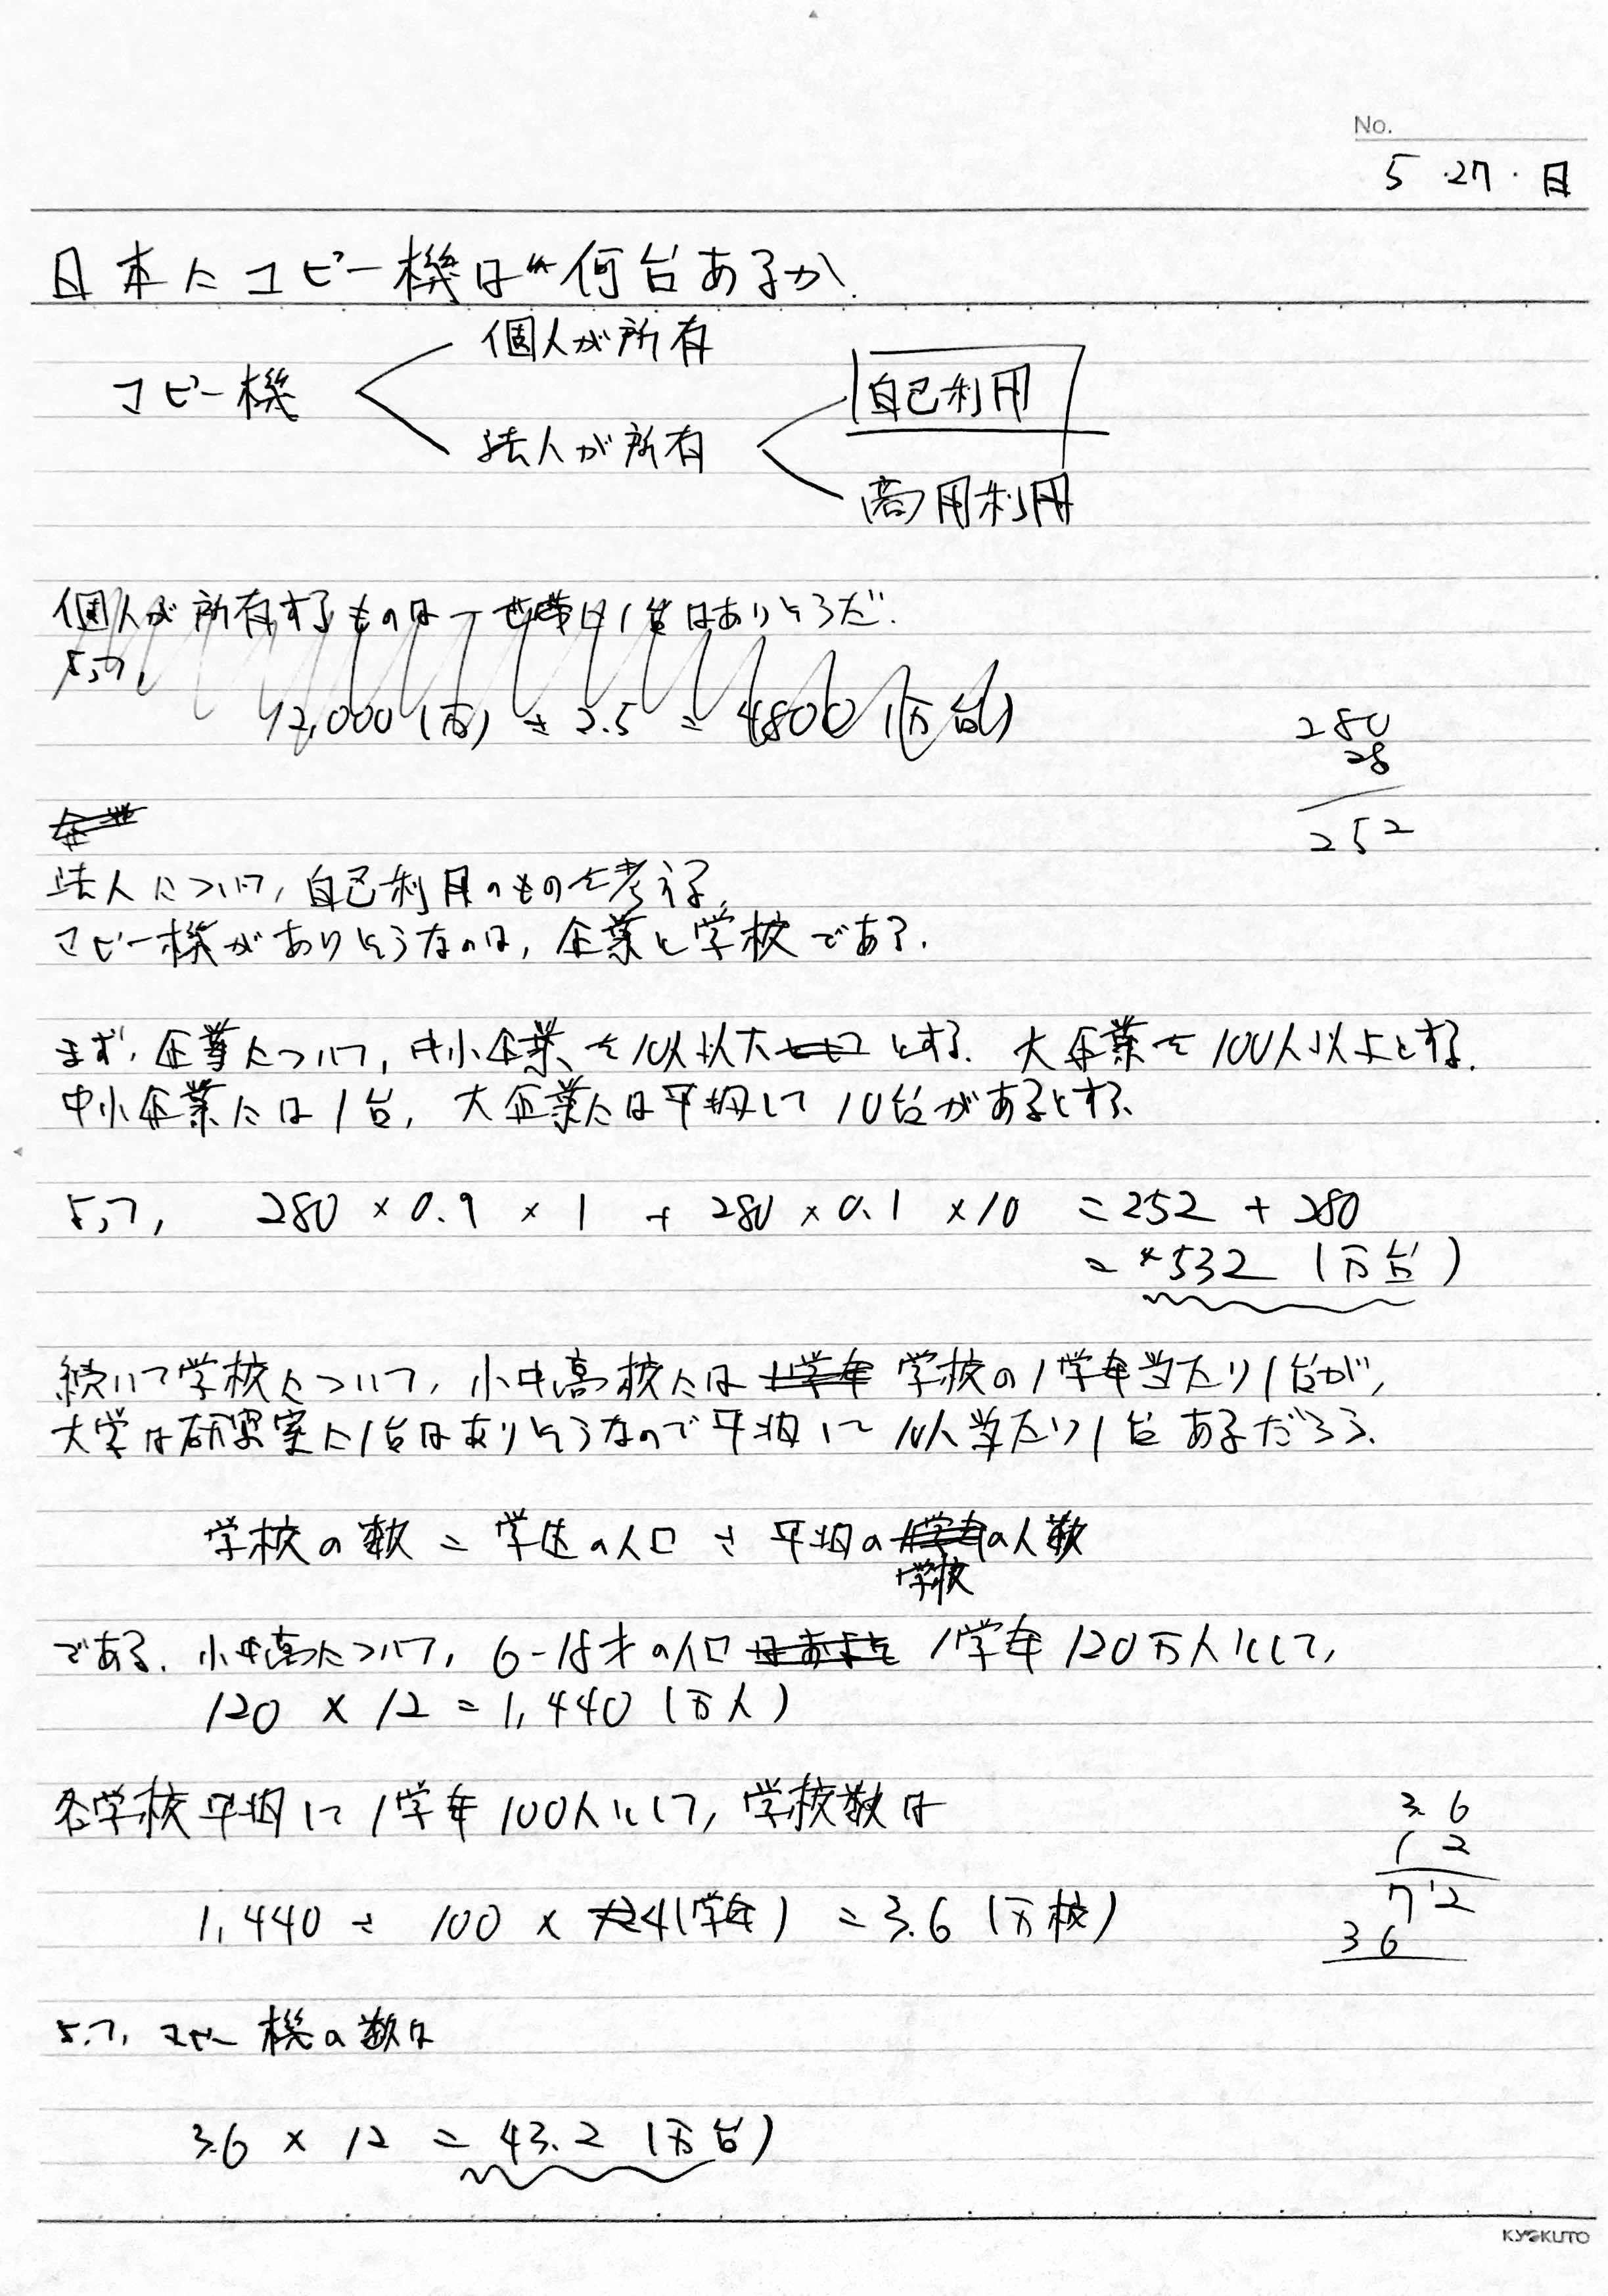 No.
5 ・27・ 日
日本にコピー機は何台あるか.
個人が所有
コピー機
自己利用
法人が所有
商用利用
個人が所有するものは一世帯に1台はありそうだ.
よって,
12,000(万) ÷ 2.5 = 4800 (万台)
280
28
252
企業
法人について, 自己利用のものを考える.
コピー機がありそうなのは, 企業と学校である.
まず, 企業について, 中小企業を10人以下とする. 大企業を100人以上とする.
中小企業には1台, 大企業には平均して10台があるとする.
よって, 280 × 0.9 × 1 + 280 × 0.1 × 10 = 252 + 280
= 532 (万台)
続いて学校について, 小中高校には1学年 学校の1学年当たり1台が,
大学は研究室に1台はありそうなので平均して10人当たり1台あるだろう.
学校の数 = 学生の人口 ÷ 平均の の人数
学校
である. 小中高について, 6-18才の人口 1学年120万人として,
120 × 12 = 1,440 (万人)
各学校平均して1学年100人として, 学校数は
3.6
12
72
36
1,440 ÷ 100 × 4(学年) = 3.6 (万校)
よって, コピー機の数は
3.6 × 12 = 43.2 (万台)
KYOKUTO